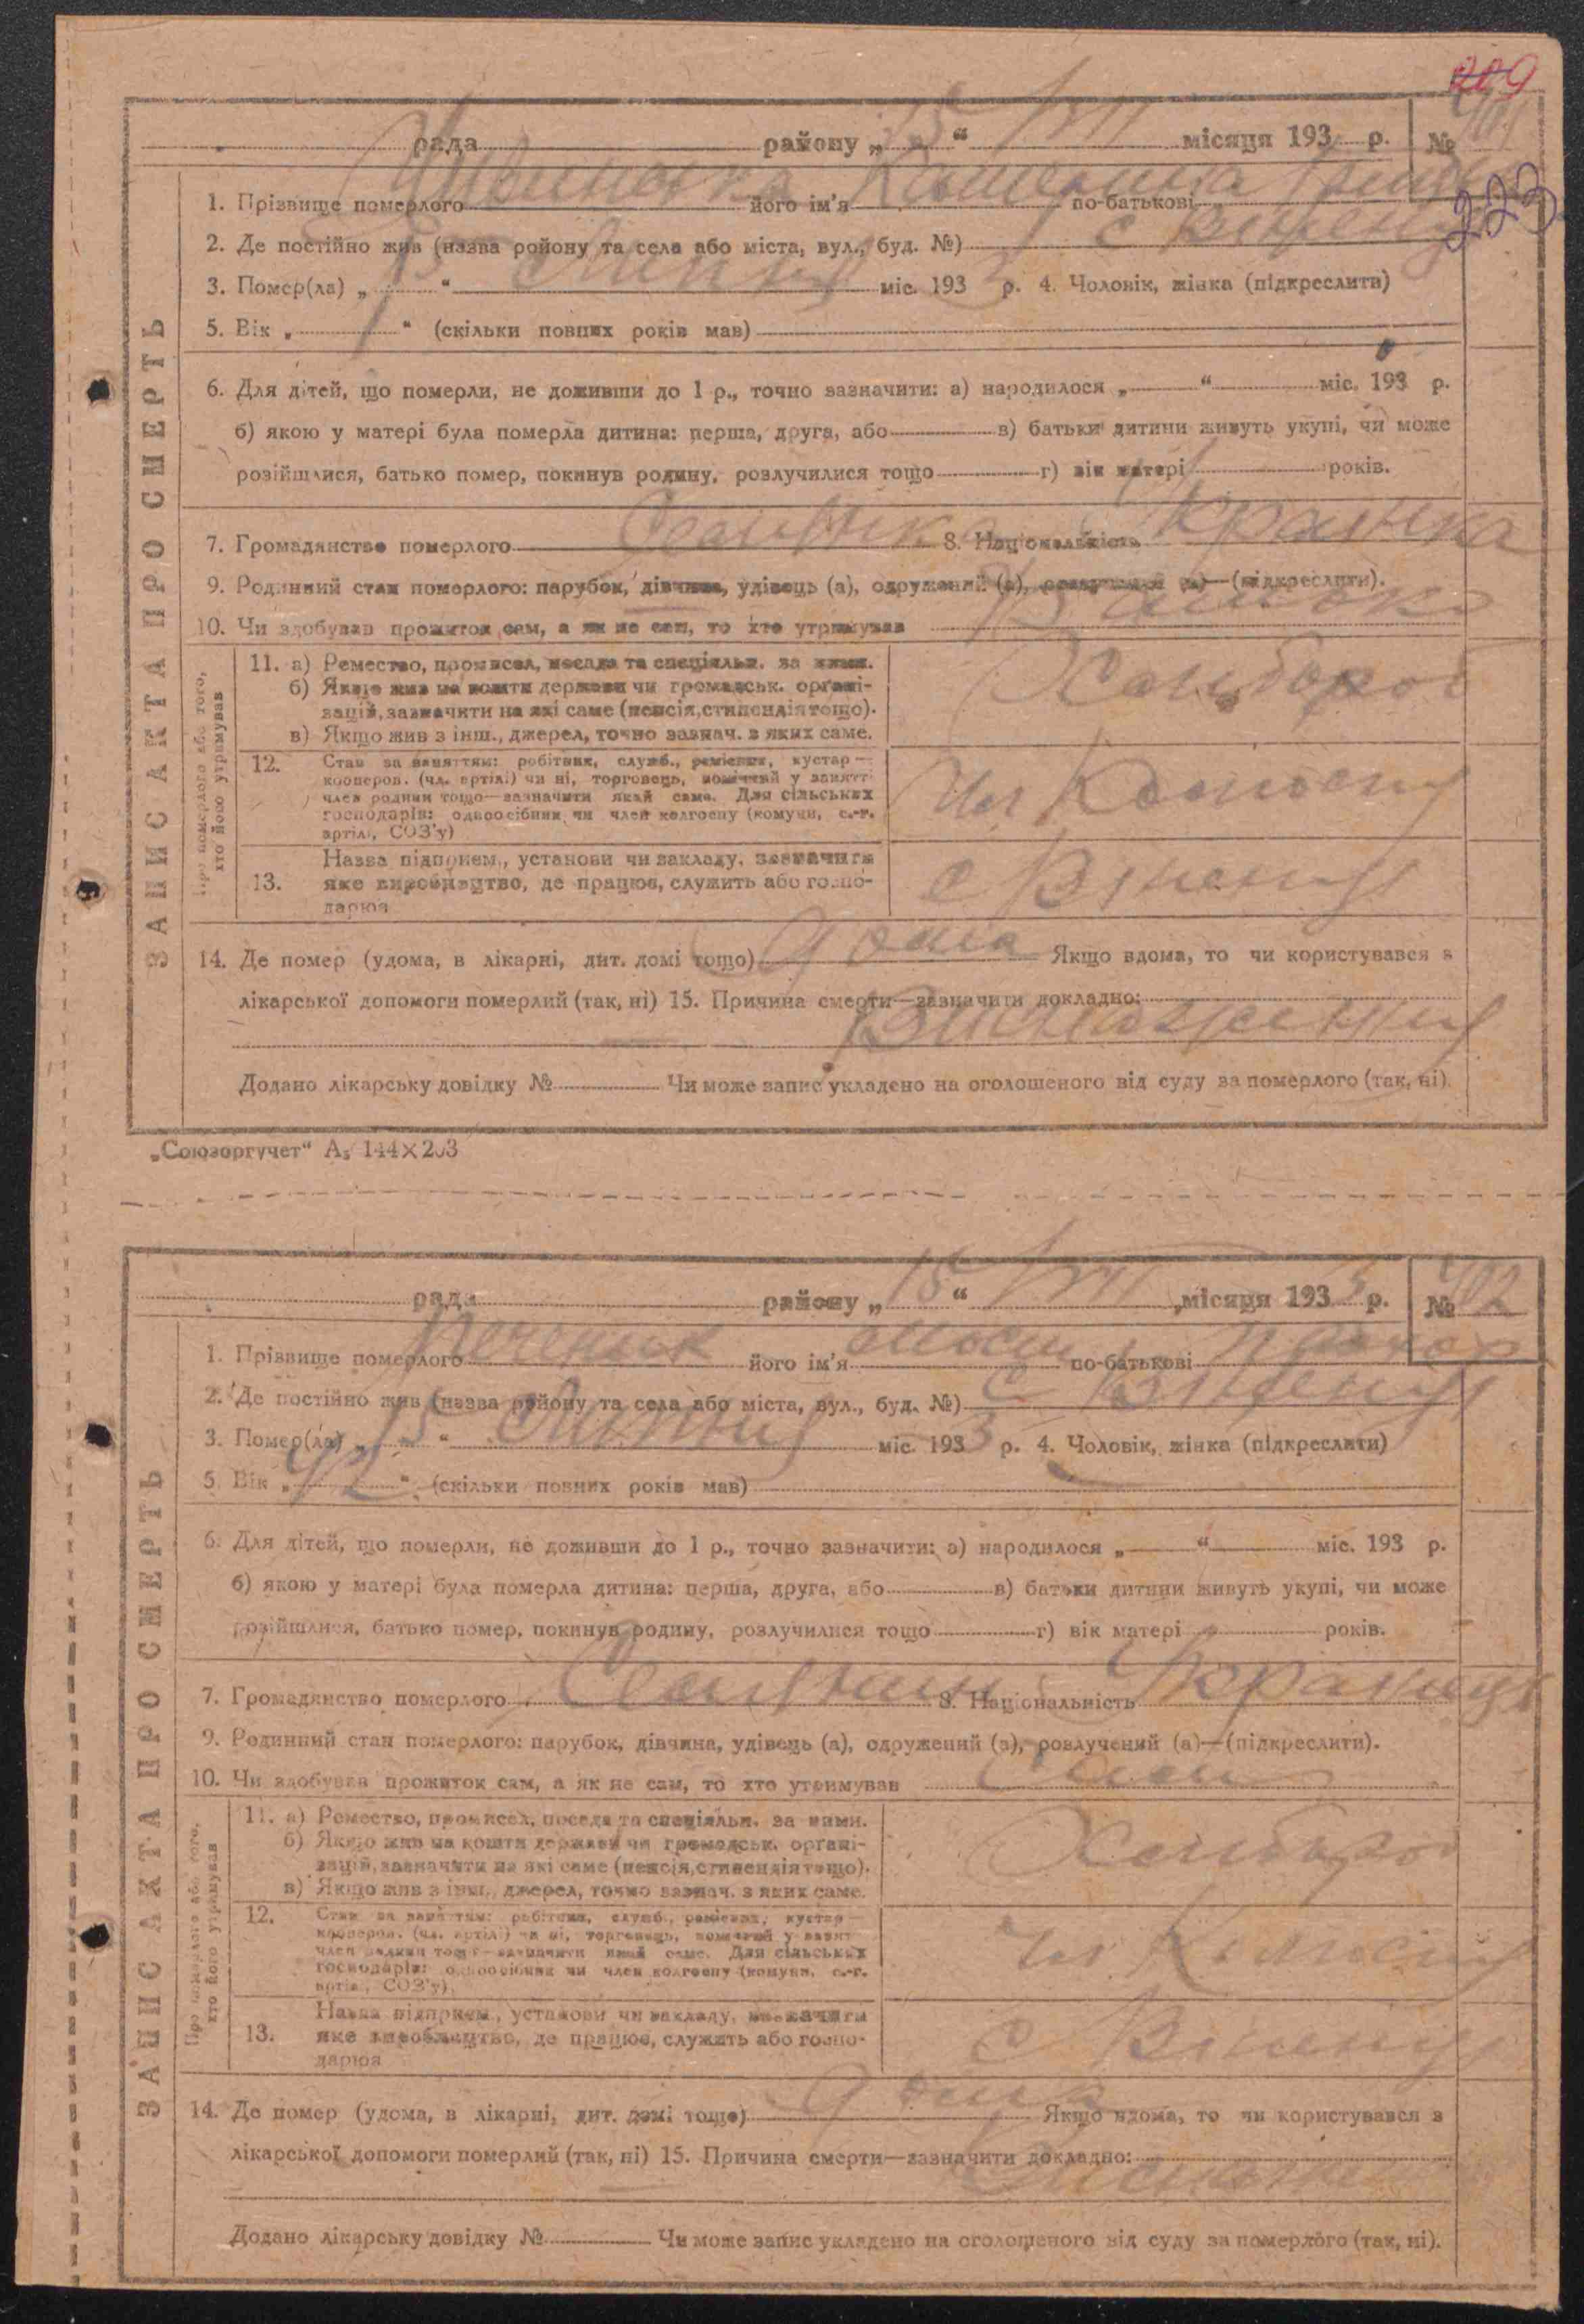 209
рада району „15“ VII місяця 193 р. № 401
223
1. Прізвище померлого його ім'я по-батькові
2. Де постійно жив (назва району та села або міста, вул., буд. №) с
3. Помер(ла) „15“ Липня міс. 1933 р. 4. Чоловік, жінка (підкреслити)
5. Вік „1“ (скільки повних років мав)
6. Для дітей, що померли, не доживши до 1 р., точно зазначити: а) народилося „ “ міс. 193 р.
б) якою у матері була померла дитина: перша, друга, або в) батьки дитини живуть укупі, чи може
розійшлися, батько помер, покинув родину, розлучилися тощо г) вік матері років.
7. Громадянство померлого Селянка 8. Національність Українка
9. Родинний стан померлого: парубок, дівчина, удівець (а), одружений (а), розлучений (а)—(підкреслити).
10. Чи здобував прожиток сам, а як не сам, то хто утримував Батько
ЗАПИС АКТА ПРО СМЕРТЬ
Про померлого або того,
хто його утримував
11. а) Ремество, промисел, посада та спеціяльн. за ними.
б) Якщо жив на кошти держави чи громадськ. органі-
зацій, зазначити на які саме (пенсія, стипендія тощо).
в) Якщо жив з інш., джерел, точно зазнач. з яких саме.
Хлібороб
12. Стан за заняттям: робітник, служб., ремісник, кустар—
кооперов. (чл. артілі) чи ні, торговець, помічний у занятті
член родини тощо—зазначити який саме. Для сільських
господарів: одноосібник чи член колгоспу (комуни, с.-г.
артілі, СОЗ'у)
Чл Колгоспу
13. Назва підприєм., установи чи закладу, зазначити
яке виробництво, де працює, служить або госпо-
дарює
с
14. Де помер (удома, в лікарні, дит. домі тощо) Удома Якщо вдома, то чи користувався з
лікарської допомоги померлий (так, ні) 15. Причина смерти—зазначити докладно:
Виснаження
Додано лікарську довідку № Чи може запис укладено на оголошеного від суду за померлого (так, ні).
„Союзоргучет“ А₅ 144×203
рада району „15“ VII місяця 1933 р. № 402
1. Прізвище померлого його ім'я по-батькові
2. Де постійно жив (назва району та села або міста, вул., буд. №) с
3. Помер(ла) „15“ Липня міс. 1933 р. 4. Чоловік, жінка (підкреслити)
5. Вік „42“ (скільки повних років мав)
6. Для дітей, що померли, не доживши до 1 р., точно зазначити: а) народилося „ “ міс. 193 р.
б) якою у матері була померла дитина: перша, друга, або в) батьки дитини живуть укупі, чи може
розійшлися, батько помер, покинув родину, розлучилися тощо г) вік матері років.
7. Громадянство померлого Селянин 8. Національність Українець
9. Родинний стан померлого: парубок, дівчина, удівець (а), одружений (а), розлучений (а)—(підкреслити).
10. Чи здобував прожиток сам, а як не сам, то хто утримував Сам
ЗАПИС АКТА ПРО СМЕРТЬ
Про померлого або того,
хто його утримував
11. а) Ремество, промисел, посада та спеціяльн. за ними.
б) Якщо жив на кошти держави чи громадськ. органі-
зацій, зазначити на які саме (пенсія, стипендія тощо).
в) Якщо жив з інш., джерел, точно зазнач. з яких саме.
Хлібороб
12. Стан за заняттям: робітник, служб., ремісник, кустар—
кооперов. (чл. артілі) чи ні, торговець, помічний у занятті
член родини тощо—зазначити який саме. Для сільських
господарів: одноосібник чи член колгоспу (комуни, с.-г.
артілі, СОЗ'у).
Чл Колгоспу
13. Назва підприєм., установи чи закладу, зазначити
яке виробництво, де працює, служить або госпо-
дарює
с
14. Де помер (удома, в лікарні, дит. домі тощо) Удома Якщо вдома, то чи користувався з
лікарської допомоги померлий (так, ні) 15. Причина смерти—зазначити докладно:
Додано лікарську довідку № Чи може запис укладено на оголошеного від суду за померлого (так, ні).